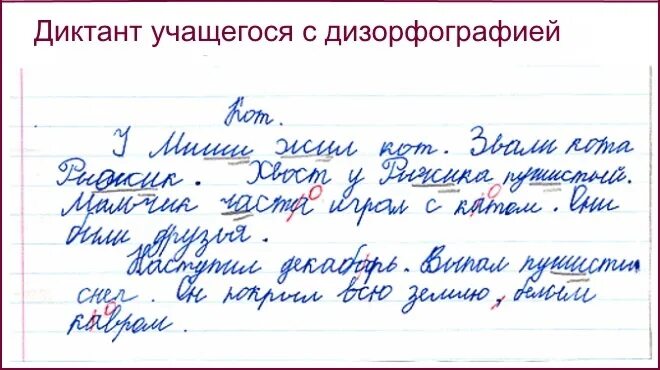 Диктант учащегося с дизорфографией
Кот.
У Миши жил кот. Звали кота
Рыжик. Хвост у Рыжика пушистый.
Мальчик часта играл с катом. Они
были друзья.
Наступил декабарь. Выпал пушистый
снег. Он покрыл всю землю, белым
кавром.